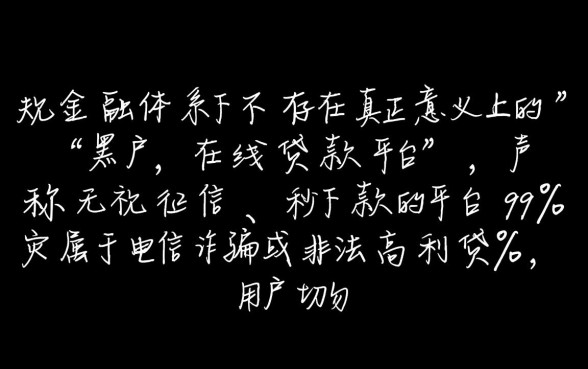 规金融体系下不存在真正意义上的”
“黑户，在线贷款平台”，声
称无视征信、秒下款的平台99%
实属于电信诈骗或非法高利贷%，
用户切勿